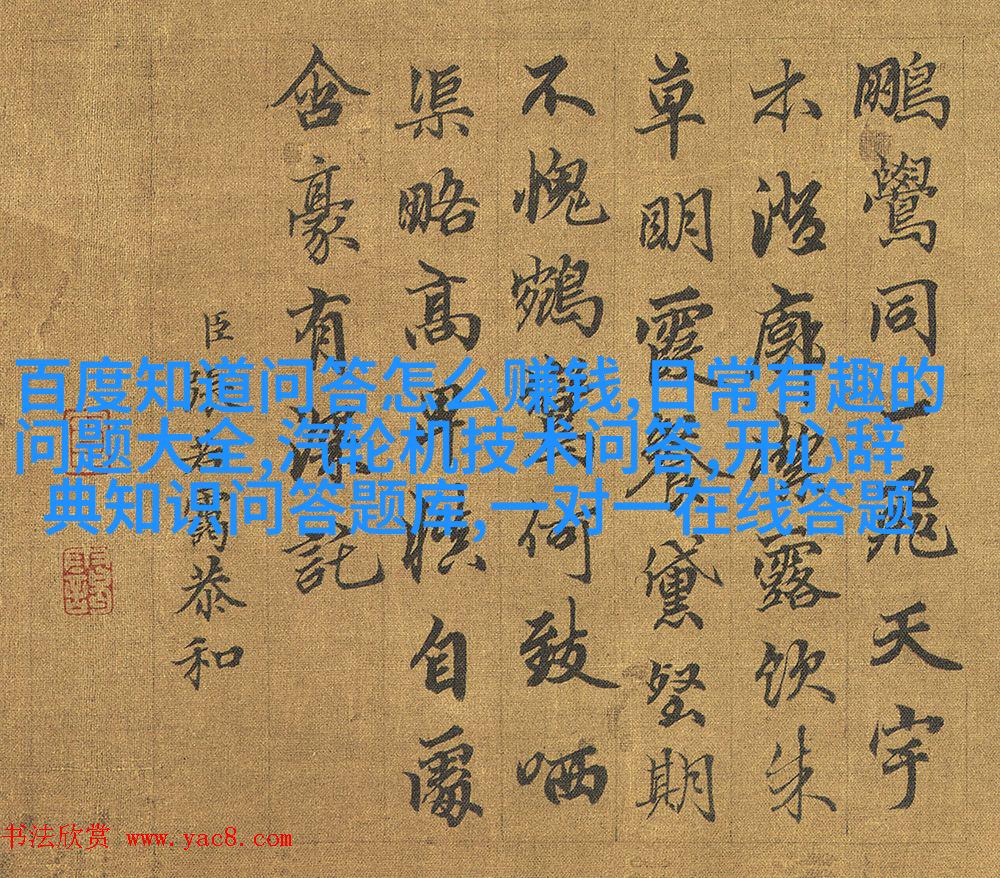 鵬鷽同一飛天宇
木澄廓潔露飲朱
草明霞餐黛堅期
不愧何致哂
渠略高自
含豪有託
臣張若靄恭和
百度知道问答怎么赚钱,日常有趣的
问题大全,汽轮机技术问答,开心辞
典知识问答题库,一对一在线答题
书法欣赏 www.yac8.com